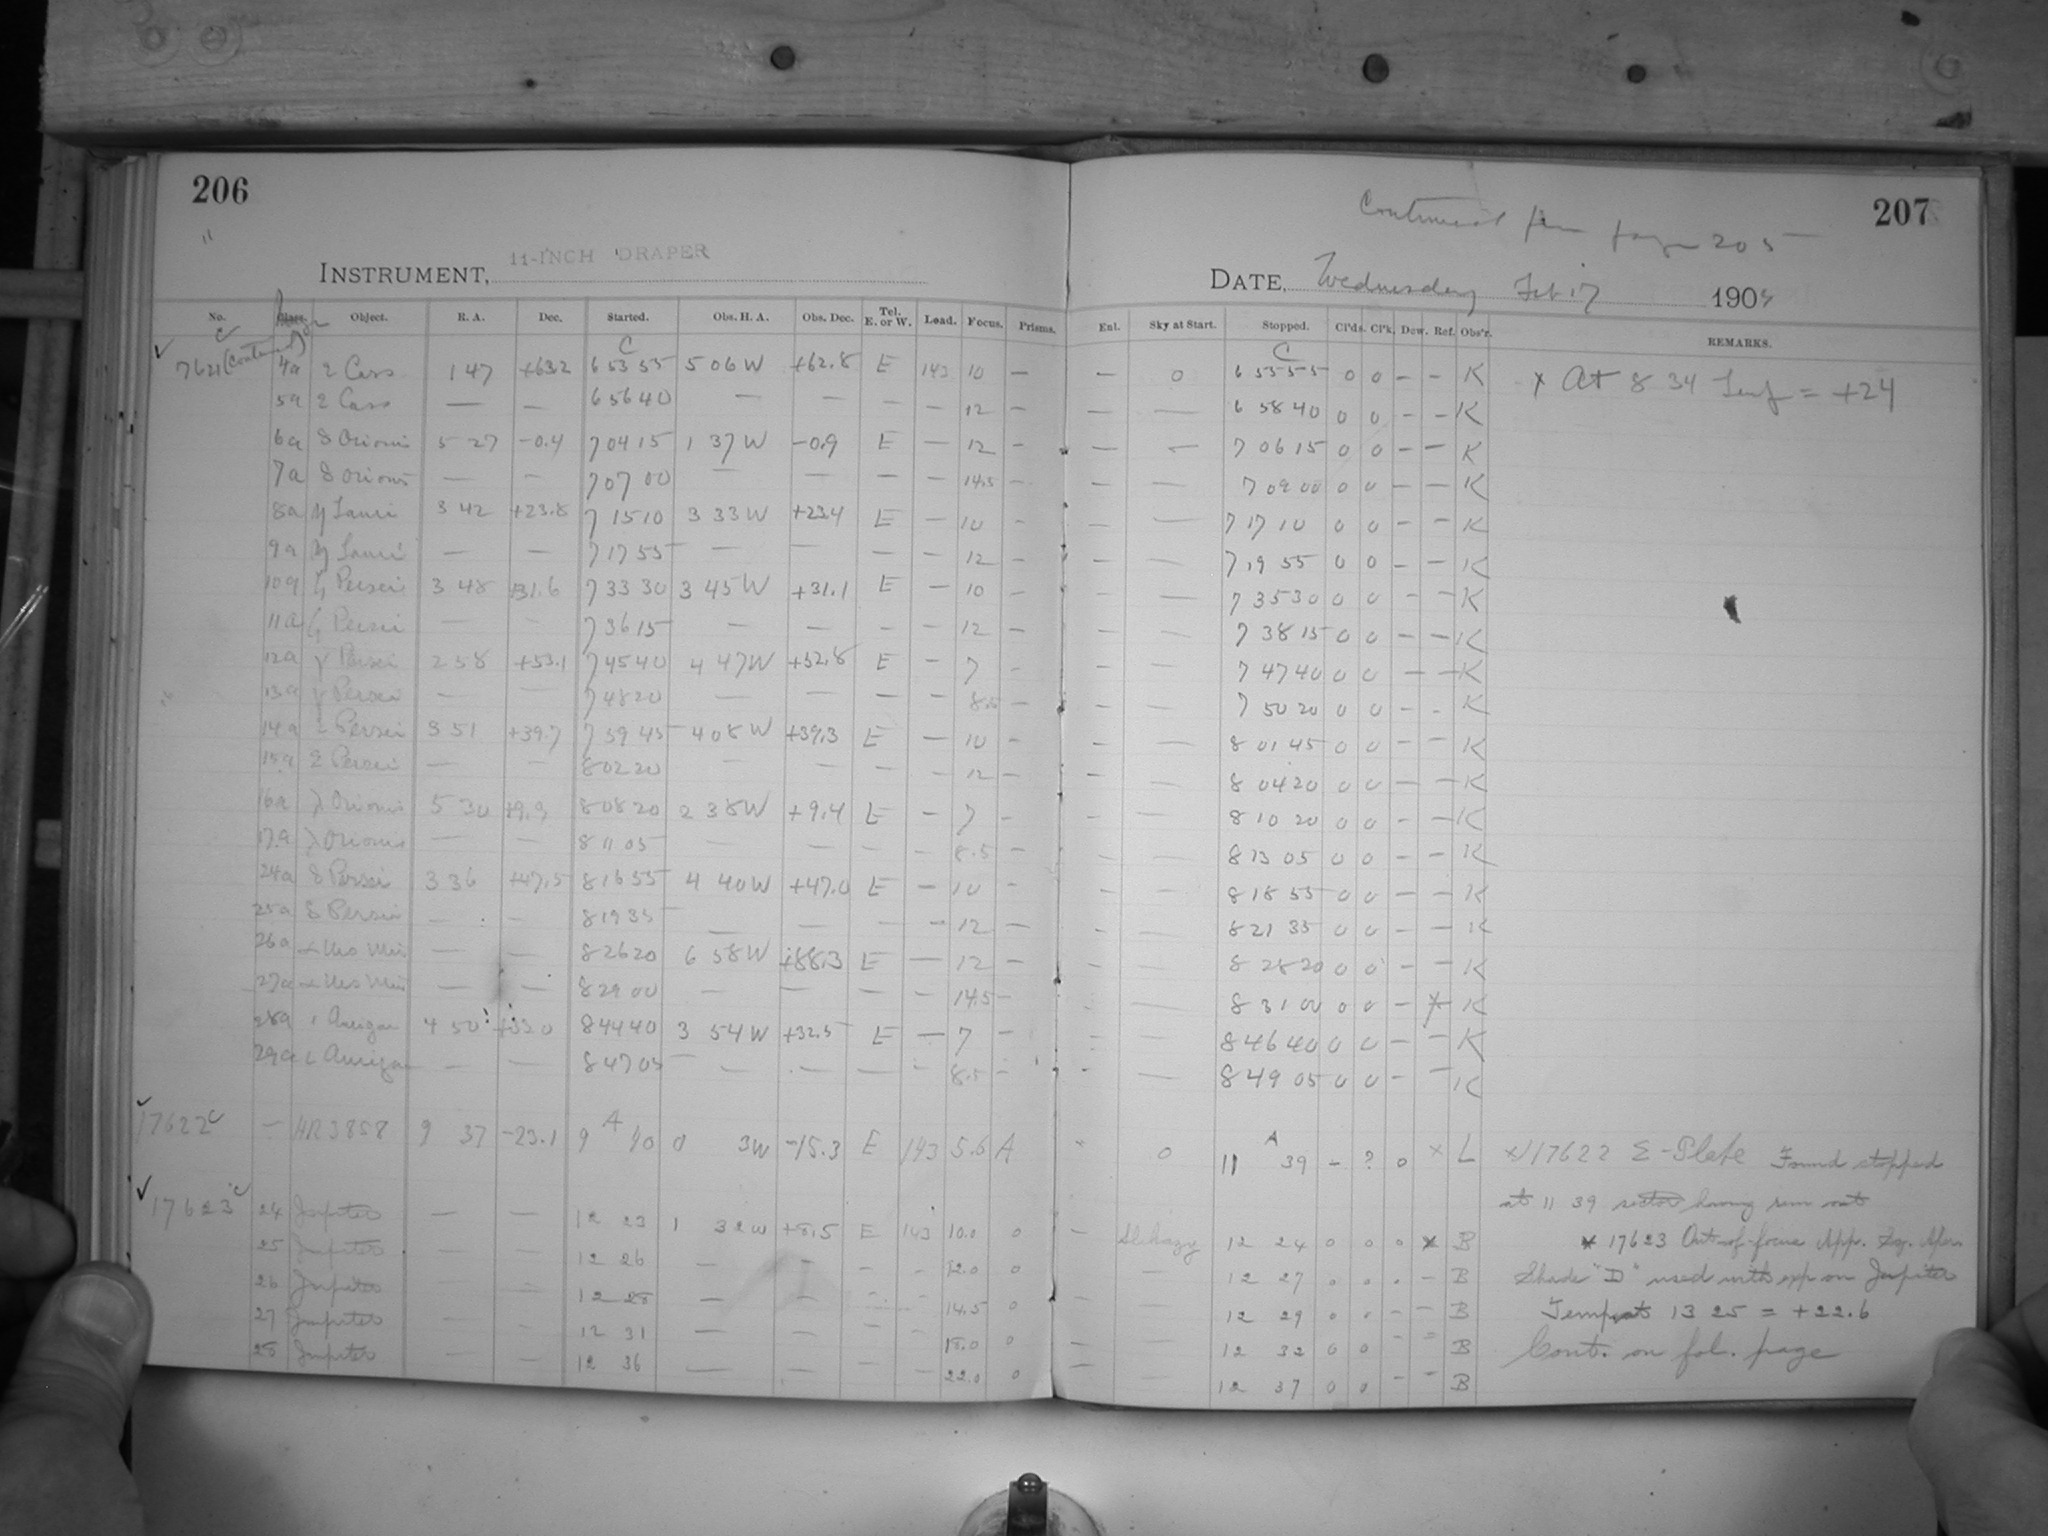 206
11-INCH DRAPER
INSTRUMENT,
No. Object. R. A. Dec. Started. Obs. H. A. Obs. Dec. Tel. E. or W. Load. Focus. Prisms.
4a ε Cass 1 47 +63.2 6 53 55 5 06 W +62.8 E 143 10 —
5a ε Cass — — 6 56 40 — — — — 12 —
6a δ Orionis 5 27 -0.4 7 04 15 1 37 W -0.9 E — 12 —
7a δ Orionis — — 7 07 00 — — — — 14.5 —
8a η Tauri 3 42 +23.8 7 15 10 3 33 W +23.4 E — 10 —
9a η Tauri — — 7 17 55 — — — — 12 —
10a ζ Persei 3 48 +31.6 7 33 30 3 45 W +31.1 E — 10 —
11a ζ Persei — — 7 36 15 — — — — 12 —
12a γ Persei 2 58 +53.1 7 45 40 4 47 W +52.8 E — 7 —
13a γ Persei — — 7 48 20 — — — — 8.5 —
14a ε Persei 3 51 +39.7 7 59 45 4 08 W +39.3 E — 10 —
15a ε Persei — — 8 02 20 — — — — 12 —
16a λ Orionis 5 30 +9.9 8 08 20 2 38 W +9.4 E — 7 —
17a λ Orionis — — 8 11 05 — — — — 8.5 —
24a δ Persei 3 36 +47.5 8 16 55 4 40 W +47.0 E — 10 —
25a δ Persei — — 8 19 35 — — — — 12 —
26a α Urs Min — — 8 26 20 6 58 W +88.3 E — 12 —
27a α Urs Min — — 8 29 00 — — — — 14.5 —
28a ι Aurigae 4 50 +33.0 8 44 40 3 54 W +32.5 E — 7 —
29a ι Aurigae — — 8 47 05 — — — — 8.5 —
17622 — HR 3858 9 37 -23.1 9 A 40 0 3 W -15.3 E 143 5.6 A
17623 24 Jupiter — — 12 23 1 32 W +8.5 E 143 10.0 0
25 Jupiter — — 12 26 — — — — 12.0 0
26 Jupiter — — 12 28 — — — — 14.5 0
27 Jupiter — — 12 31 — — — — 18.0 0
28 Jupiter — — 12 36 — — — — 22.0 0
207
Continued from page 205
DATE, Wednesday Feb 17 1904
Enl. Sky at Start. Stopped. Cl'ds. Cl'k. Dew. Ref. Obs'r. REMARKS.
— 0 6 55 55 0 0 — — K x At 8 34 Temp = +24
— — 6 58 40 0 0 — — K
— — 7 06 15 0 0 — — K
— — 7 09 00 0 0 — — K
— — 7 17 10 0 0 — — K
— — 7 19 55 0 0 — — K
— — 7 35 30 0 0 — — K
— — 7 38 15 0 0 — — K
— — 7 47 40 0 0 — — K
— — 7 50 20 0 0 — — K
— — 8 01 45 0 0 — — K
— — 8 04 20 0 0 — — K
— — 8 10 20 0 0 — — K
— — 8 13 05 0 0 — — K
— — 8 18 55 0 0 — — K
— — 8 21 35 0 0 — — K
— — 8 28 20 0 0 — — K
— — 8 31 00 0 0 — x K
— — 8 46 40 0 0 — — K
— — 8 49 05 0 0 — — K
0 11 A 39 — ? 0 x L x 17622 Σ-Plate Found stopped
at 11 39 sector having run out
— Sl. hazy 12 24 0 0 0 x B x 17623 Out-of-focus App. Sq. Aper.
— 12 27 0 0 0 — B Shade "D" used with exp on Jupiter
— — 12 29 0 0 — — B Temp at 13 25 = +22.6
— — 12 32 0 0 — — B Cont. on fol. page
— 12 37 0 0 — — B